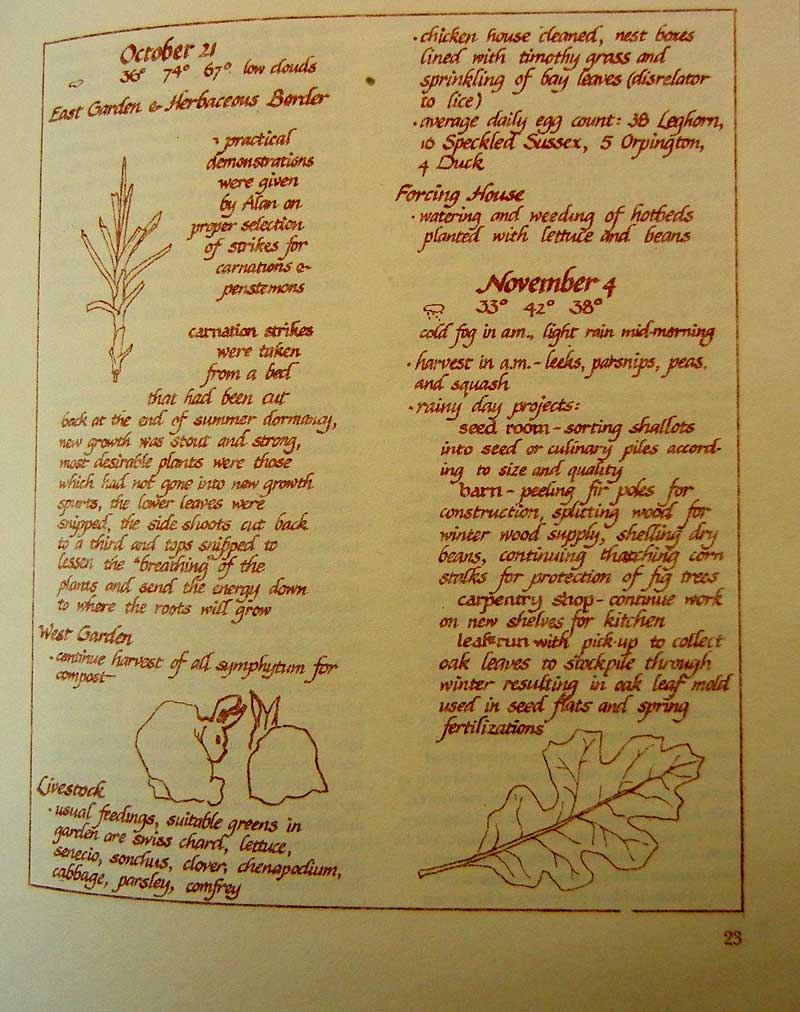 October 21
36° 74° 67° low clouds
East Garden & Herbaceous Border
· practical
demonstrations
were given
by Alan on
proper selection
of strikes for
carnations &
penstemons
carnation strikes
were taken
from a bed
that had been cut
back at the end of summer dormancy,
new growth was stout and strong,
most desirable plants were those
which had not gone into new growth
spurts, the lower leaves were
snipped, the side shoots cut back
to a third and tops snipped to
lessen the "breathing" of the
plants and send the energy down
to where the roots will grow
West Garden
· continue harvest of all symphytum for
compost—
Livestock
· usual feedings, suitable greens in
garden are swiss chard, lettuce,
senecio, sonchus, clover, chenapodium,
cabbage, parsley, comfrey
· chicken house cleaned, nest boxes
lined with timothy grass and
sprinkling of bay leaves (disrelator
to lice)
· average daily egg count: 38 Leghorn,
16 Speckled Sussex, 5 Orpington,
4 Duck
Forcing House
· watering and weeding of hotbeds
planted with lettuce and beans
November 4
33° 42° 38°
cold fog in am., light rain mid-morning
· harvest in a.m. - leeks, parsnips, peas,
and squash
· rainy day projects:
seed room - sorting shallots
into seed or culinary piles accord-
ing to size and quality
barn - peeling fir poles for
construction, splitting wood for
winter wood supply, shelling dry
beans, continuing thatching corn
stalks for protection of fig trees
carpentry shop - continue work
on new shelves for kitchen
leaf run with pick-up to collect
oak leaves to stockpile through
winter resulting in oak leaf mold
used in seed flats and spring
fertilizations
23